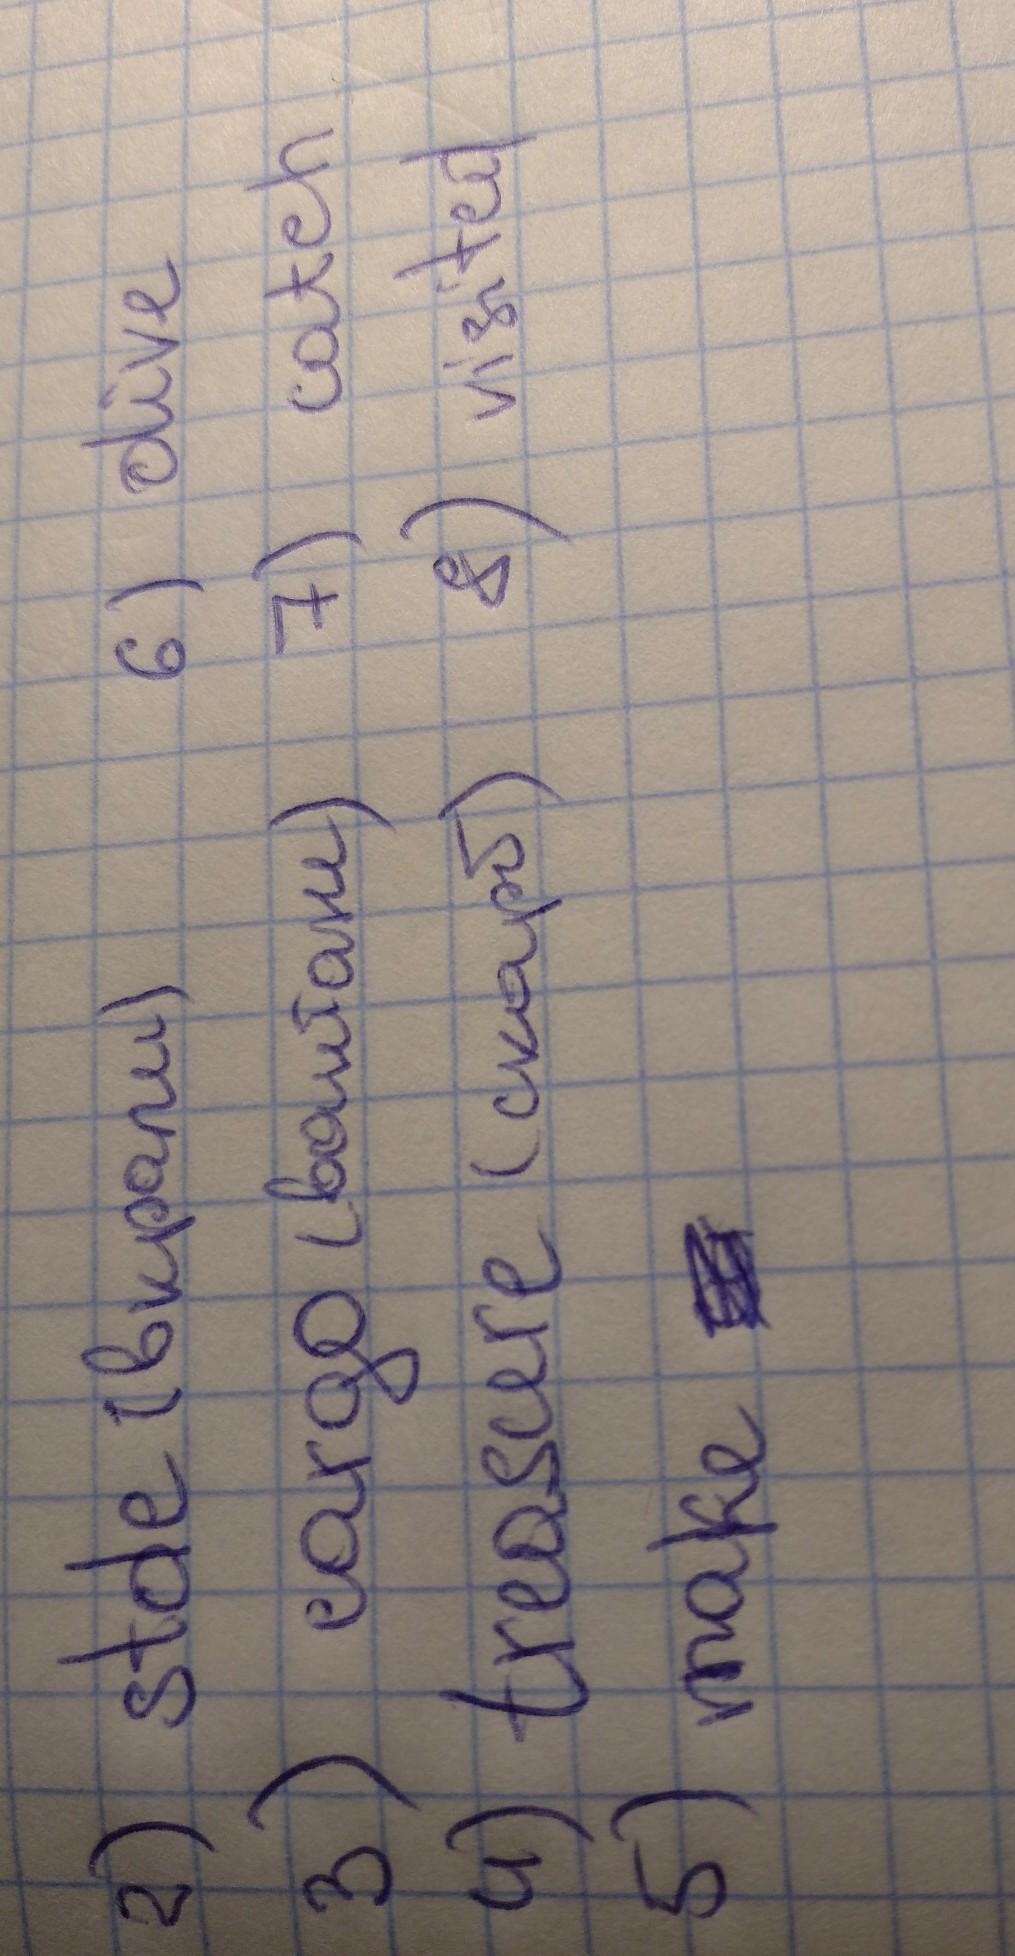 2) stde (вкрали)
3) cargo (вантаж)
4) treasure (скарб)
5) make
6) dive
7) catch
8) visited